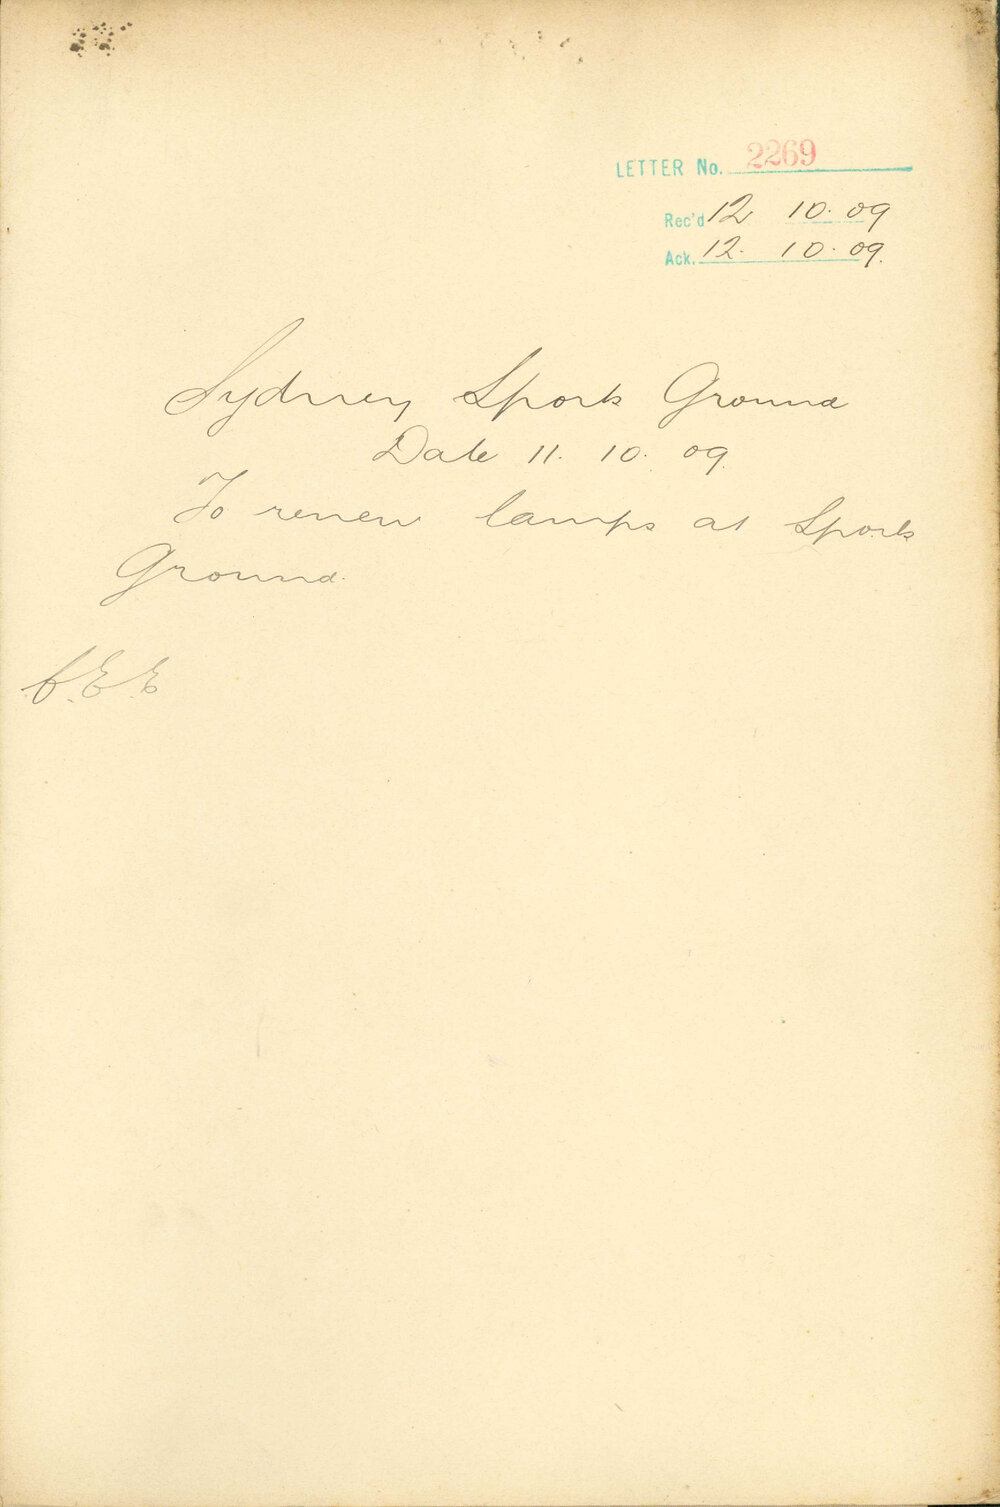 LETTER No. 2269
Rec'd 12 10. 09
Ack. 12. 10. 09.
Sydney Sports Ground
Date 11. 10. 09.
To renew lamps at Sports
Ground.
C.E.E